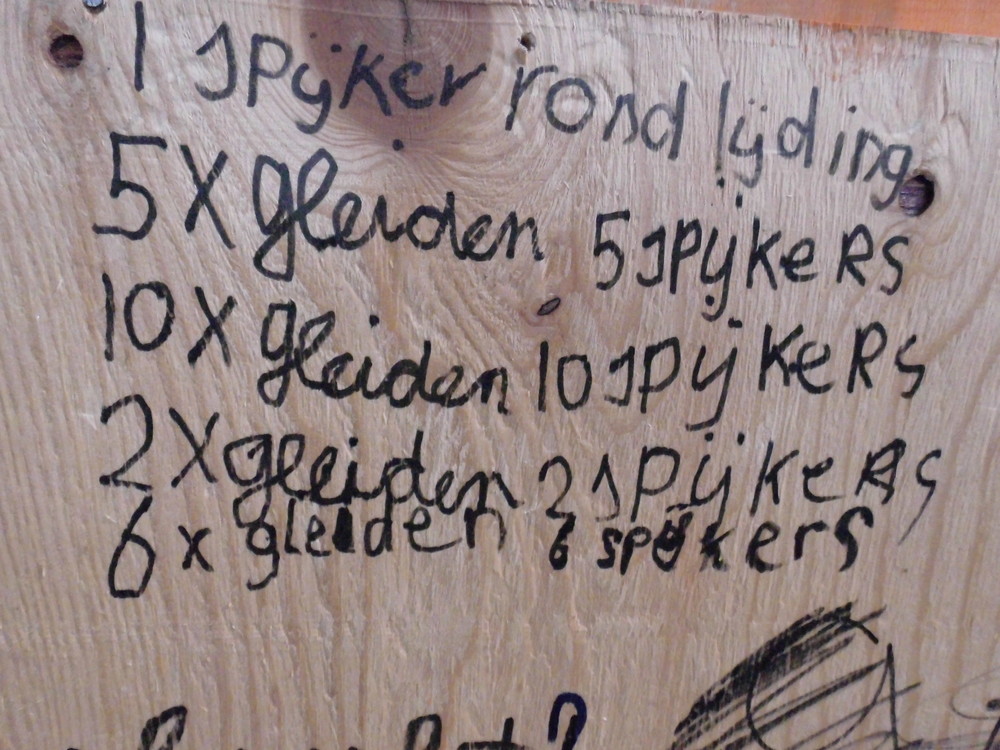 1 spijker rondlijding
5 x gleiden 5 spijkeRs
10 x gleiden 10 spijkeRs
2 x gleiden 2 spijkeRs
6 x gleiden 6 spijkers